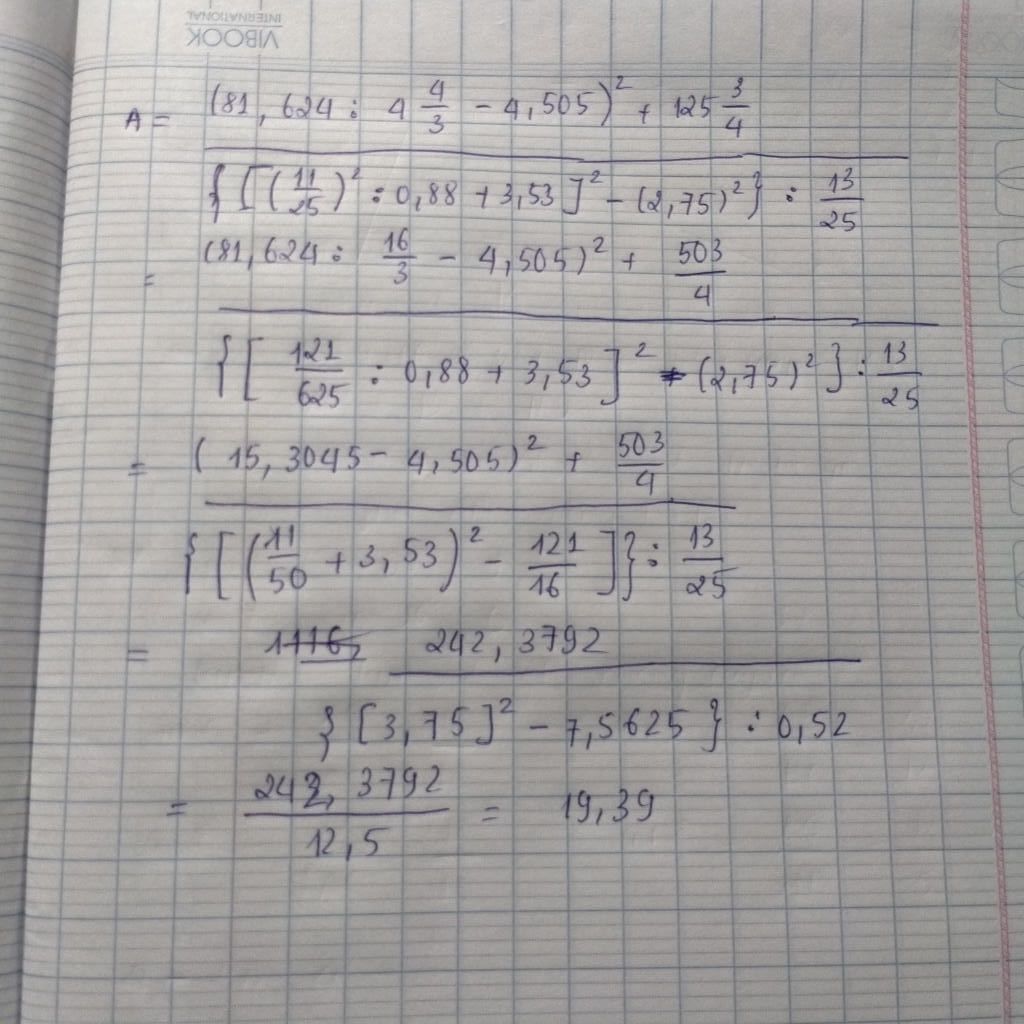 VIBOOK
INTERNATIONAL
A = (81,624 : 4 4/3 - 4,505)² + 125 3/4
{[(11/25)² : 0,88 + 3,53]² - (2,75)²} : 13/25
= (81,624 : 16/3 - 4,505)² + 503/4
{[121/625 : 0,88 + 3,53]² - (2,75)²} : 13/25
= (15,3045 - 4,505)² + 503/4
{[(11/50 + 3,53)² - 121/16]} : 13/25
= 242,3792
{[3,75]² - 7,5625} : 0,52
= 242,3792/12,5 = 19,39